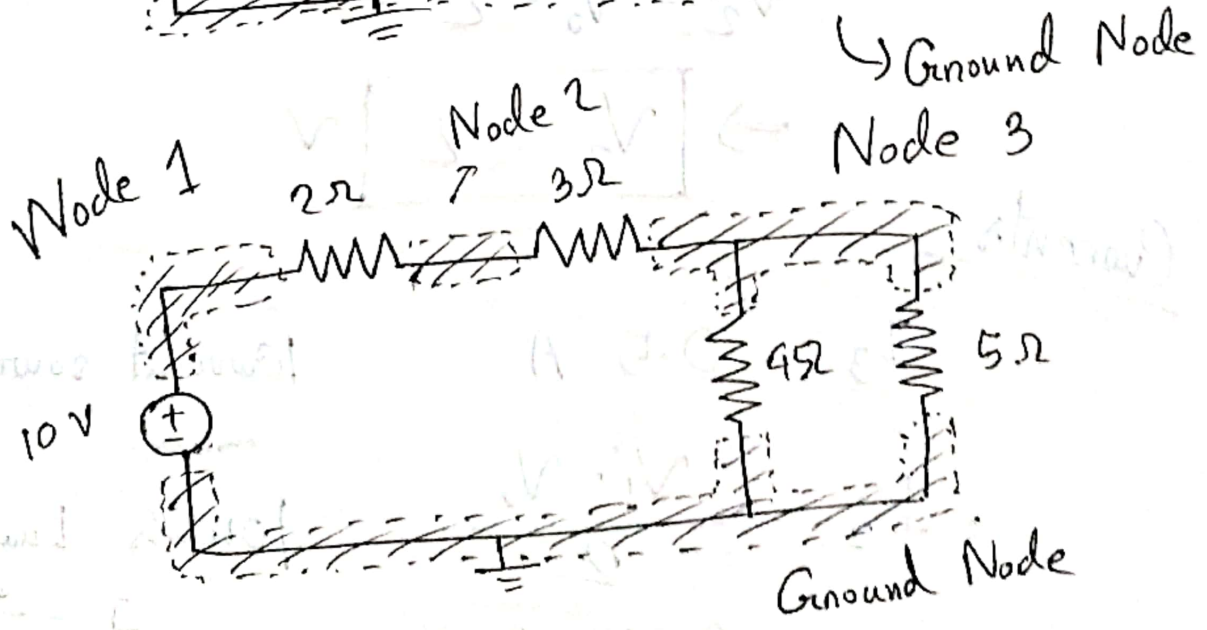 ↳ Ground Node
Node 1
Node 2
Node 3
2Ω
3Ω
10 V
+
-
4Ω
5Ω
Ground Node